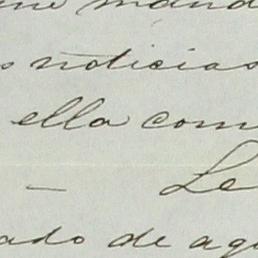 s noticias
ella com
— Le
ado de agu